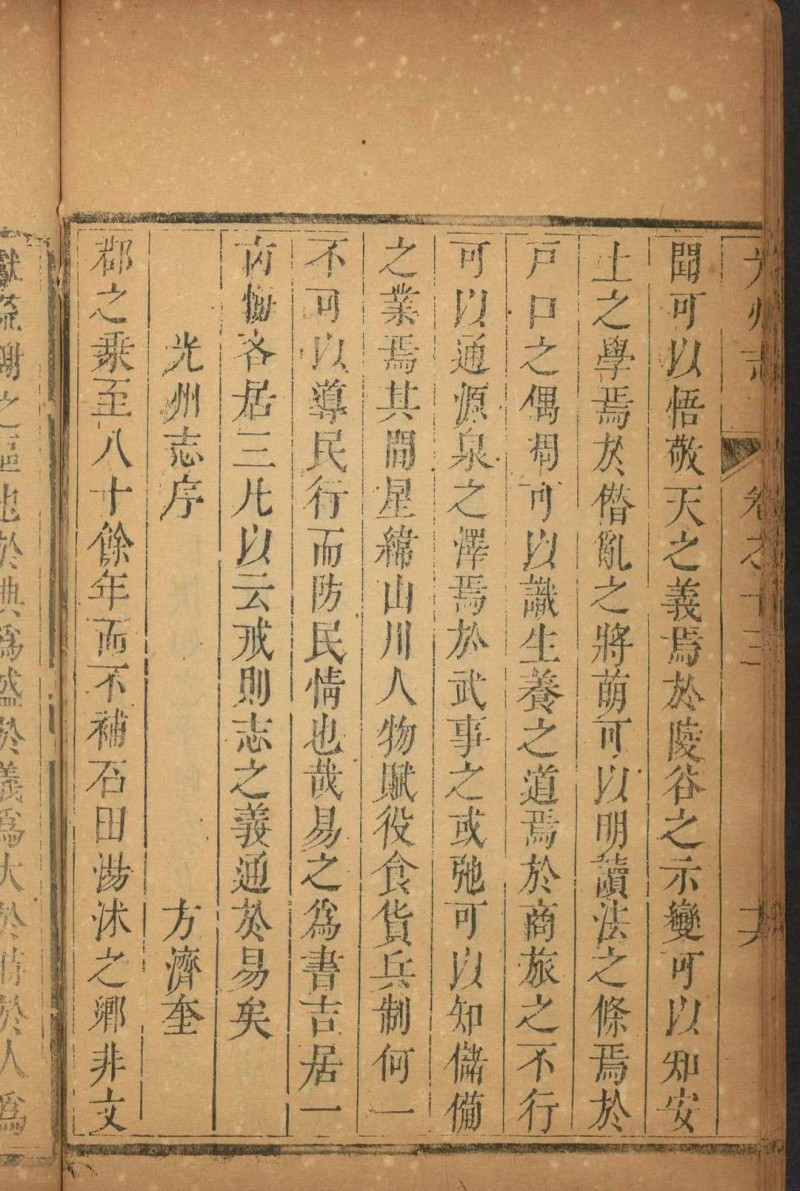 光州志 卷之十三
聞可以悟敬天之義焉於陵谷之示變可以知安
土之學焉於僭亂之將萌可以明讀法之條焉於
戸口之偶凋可以識生養之道焉於商旅之不行
可以通源泉之澤焉於武事之或弛可以知儲備
之業焉其間星緯山川人物賦役食貨兵制何一
不可以導民行而防民情也哉易之為書吉居一
凶悔吝居三凡以云戒則志之義通於易矣
光州志序 方濟奎
郡之乗至八十餘年而不補石田湯沐之鄉非文
獻 謝之區也於典為盛於義為大於 於人為